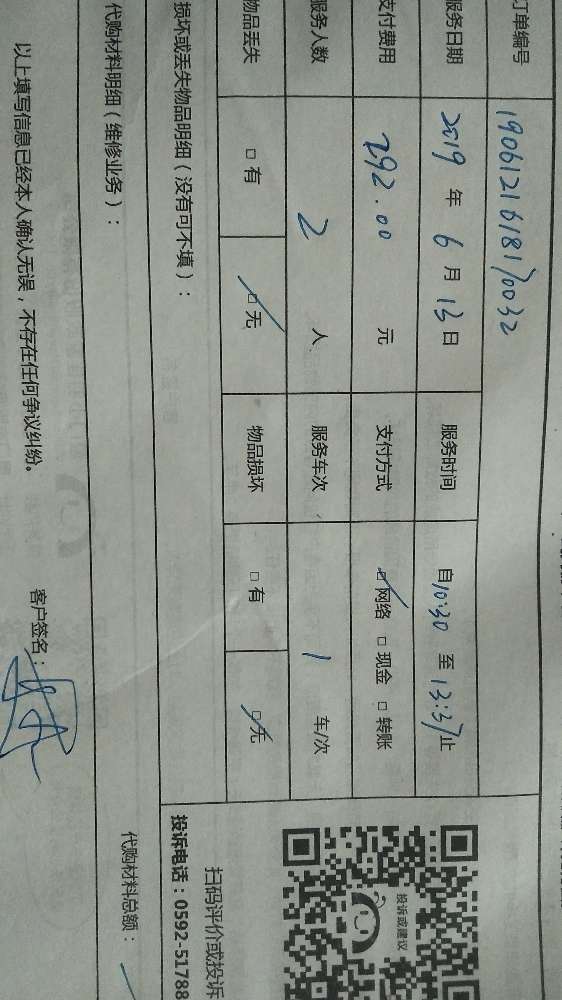 订单编号 1906121618170032
服务日期 2019 年 6 月 13 日 服务时间 自10:30 至 13:37止
支付费用 292.00 元 支付方式 网络 现金 转账
服务人数 2 人 服务车次 1 车/次
物品丢失 有 无 物品损坏 有 无
损坏或丢失物品明细（没有可不填）：
代购材料明细（维修业务）： 代购材料总额：
以上填写信息已经本人确认无误，不存在任何争议纠纷。
客户签名：
投诉或建议
扫码评价或投诉
投诉电话：0592-51788